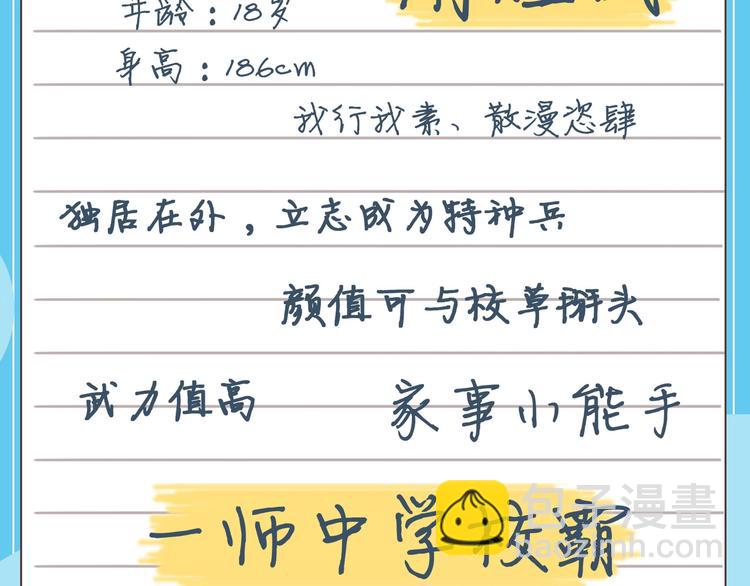 年龄：18岁
身高：186cm
我行我素、散漫恣肆
独居在外，立志成为特种兵
颜值可与校草掰头
武力值高
家事小能手
一师中学校霸
包子漫畫
baozimh.com